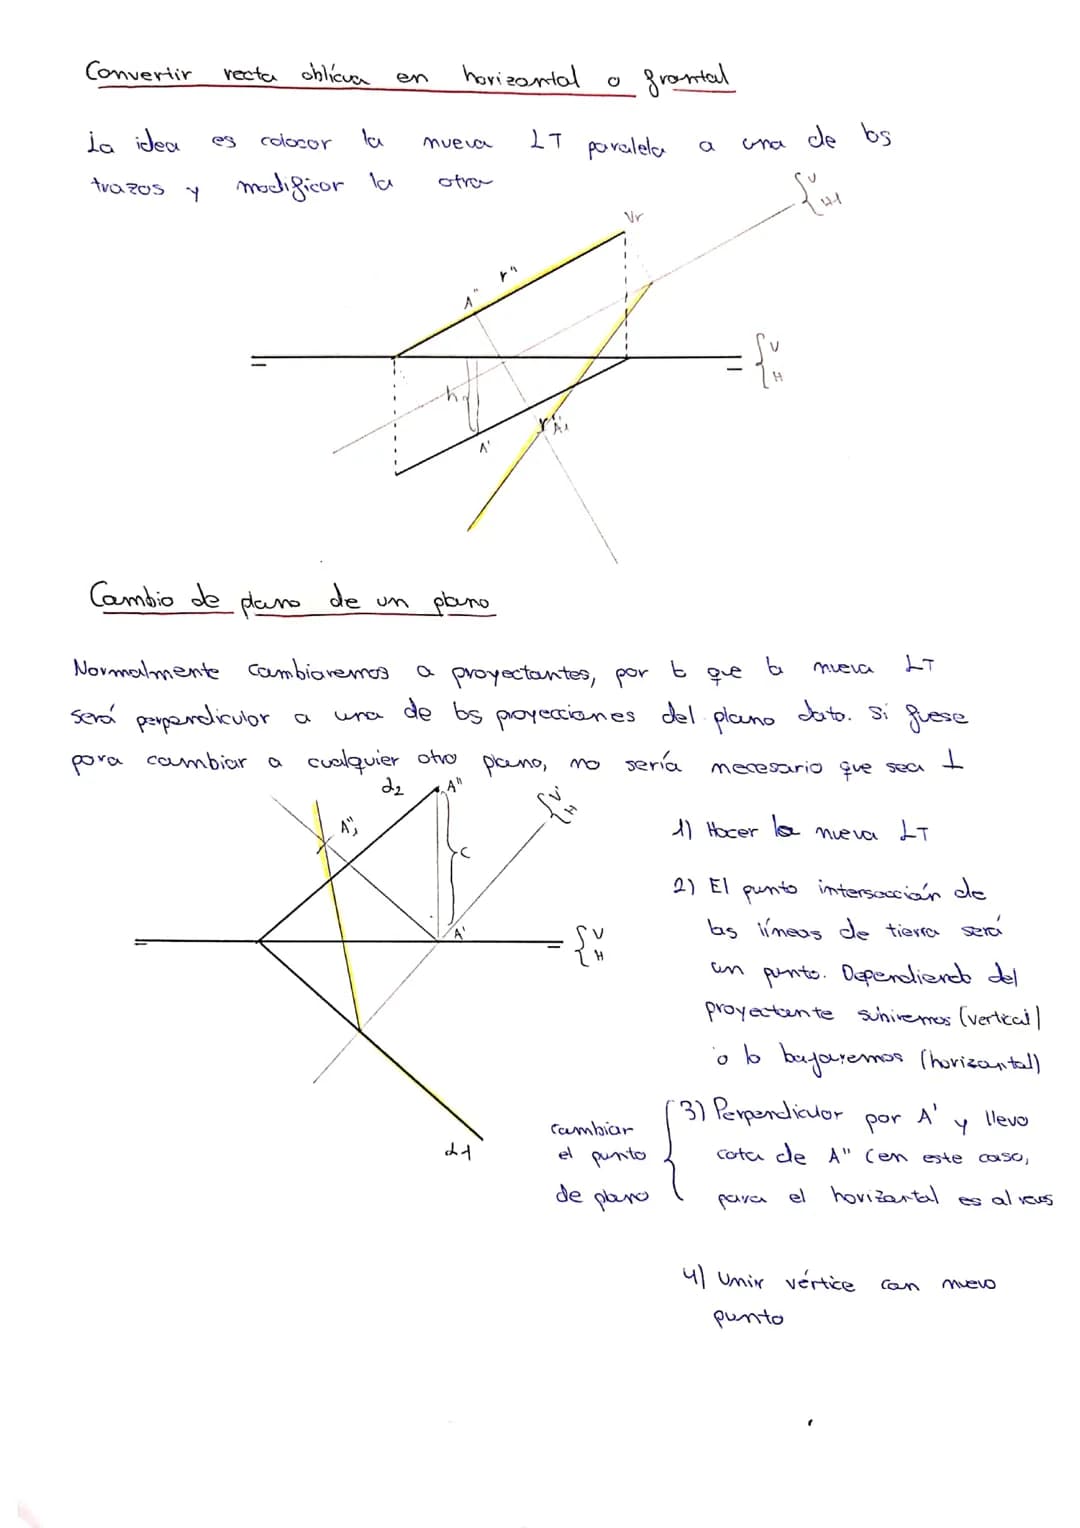 Convertir recta oblícua en horizontal o frontal
La idea es colocar la nueva LT paralela a una de los
trazos y modificar la otra
{V H1
Vr
r"
A"
{V H
h
r'
A'1
A'
Cambio de plano de un plano
Normalmente cambiaremos a proyectantes, por lo que la nueva LT
será perpendicular a una de los proyecciones del plano dato. Si fuese
para cambiar a cualquier otro plano, no sería necesario que sea ⊥
d2
A"
{V' H
A"1
C
A'
{V H
d1
1) Hacer la nueva LT
2) El punto intersección de
las líneas de tierra será
un punto. Dependiendo del
proyectante subiremos (vertical)
o lo bajaremos (horizontal)
cambiar
el punto
de plano
3) Perpendicular por A' y llevo
cota de A" (en este caso,
para el horizantal es al reves
4) Unir vértice con nuevo
punto